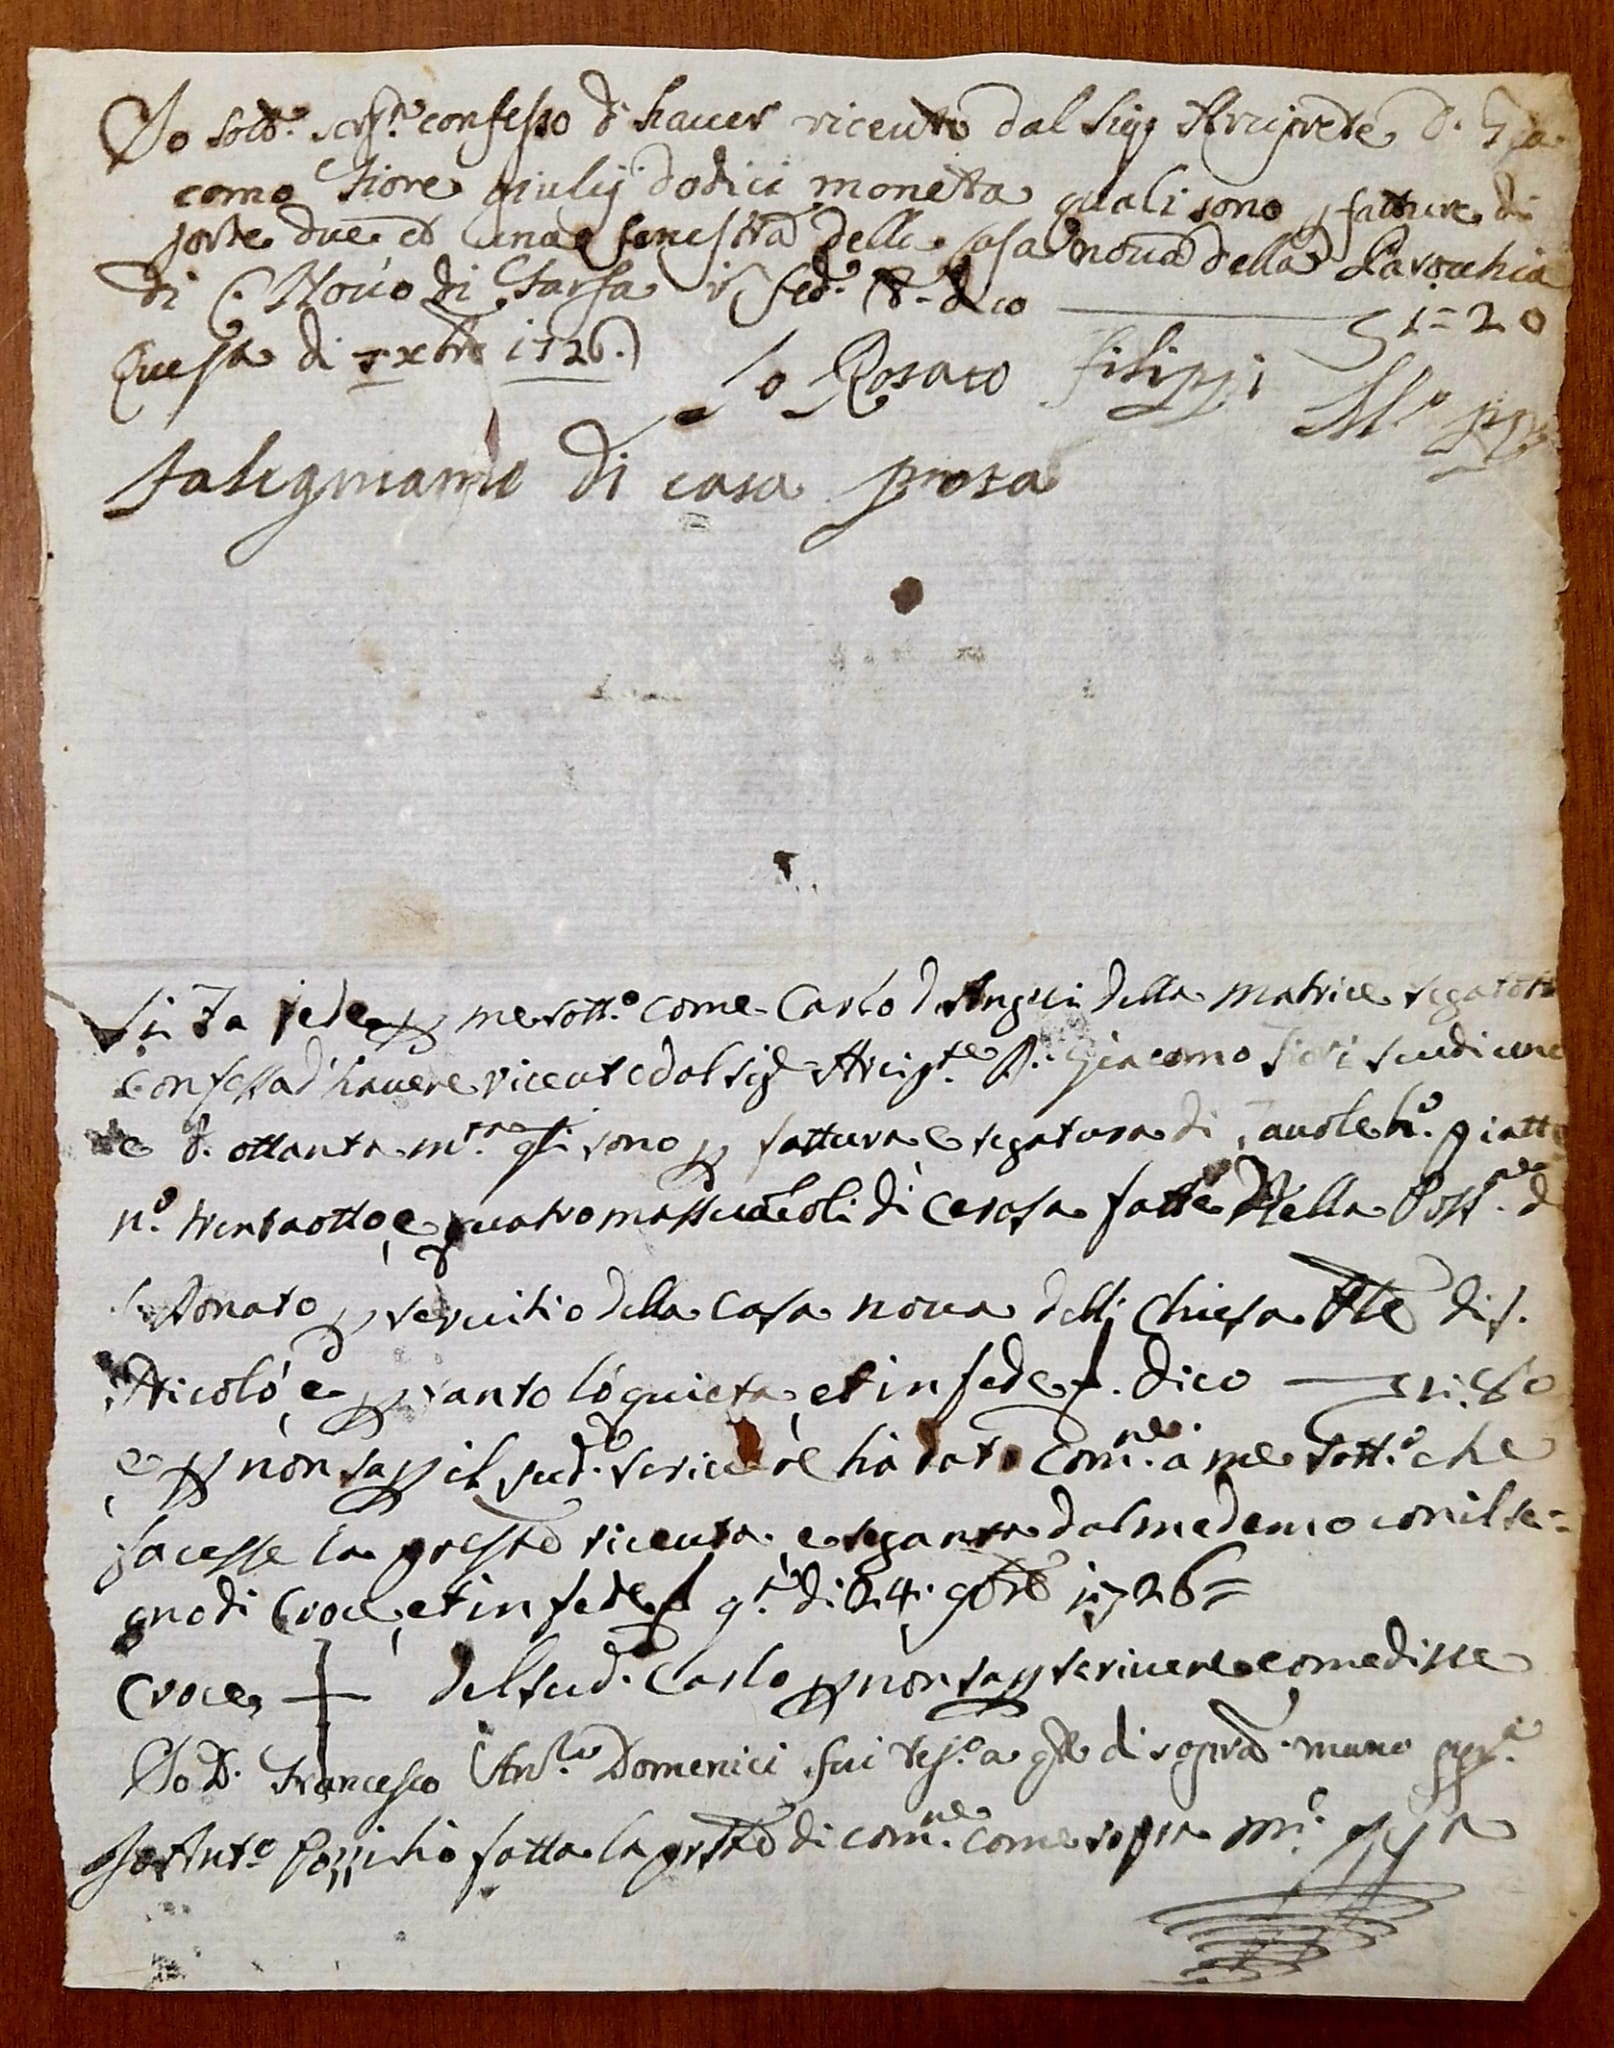 Io sott.º scrt.º confesso d' hauer riceuto dal Sig.r Arciprete D. Gia
como Fiore giulij dodici moneta quali sono p fatture di
porte due et una fenestra della casa noua della Parochia
di C. Nouo di Farfa in fed. &. dico —— 1=20
Questo di xbre 1726.)
Io Rosato Filippi M.º pp
falegniame di casa prota
Si fa fede p me sott.º come Carlo d'Angeli della Matrice segatore
confessa d' hauere riceute dal sig.r Arcip.te D. Giacomo Fiori scudi uno
e b. ottanta m.ta q.li sono p fattura e segatura di tauole h.º piatte
n.º trentaotto, e quatro massuccoli di Cerasa fatte nella Poss.ne d
S. Donato p seruitio della Casa noua della Chiesa Ple di S.
Nicolò, e p tanto lo quieta, et in fede &. dico —— 1:80
e p non sap il sud.º scriuere hà dato com.ne à me sott.º che
facesse la presnte riceuta, e segnata dal medemo con il se=
gno di Croce, et in fede & q.to di 24. 9bre 1726=
Croce + del sud.º Carlo p non sap scriuere come disse
Io D. Francesco Ant.º Domenici fui tes.º a q.to di sopra mano pp.a
Io Ant.º hò fatta la presnte di com.ne come sopra m.º pp.a